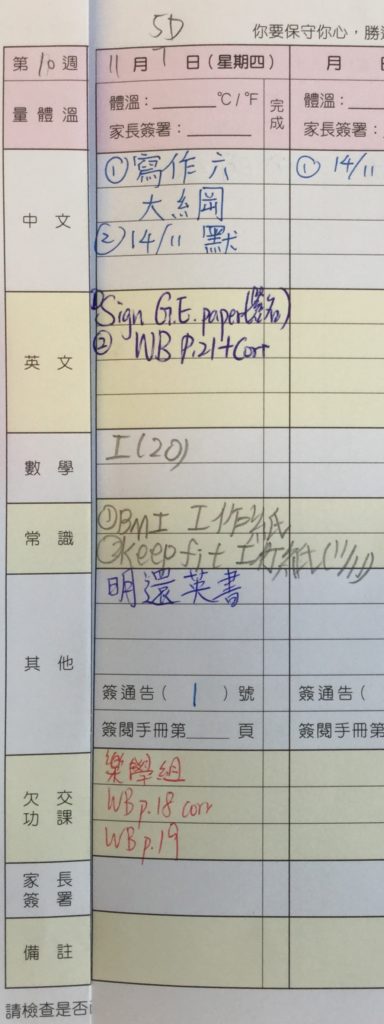 5D
你要保守你心，勝
第10週 11月7日(星期四) 月
量體溫 體溫：______℃/℉ 完成 體溫：
家長簽署：______ 家長簽署：
中文 ①寫作六 ① 14/11
大綱
② 14/11 默
英文 ①Sign G.E. paper(簽名)
② WB P.21+Corr
數學 I(20)
常識 ①BMI 工作紙
②Keep fit 工作紙(11/11)
其他 明還英書
簽通告( 1 )號 簽通告(
簽閱手冊第____頁 簽閱手冊
欠交功課 樂學組
WB p.18 corr
WB p.19
家長簽署
備註
請檢查是否